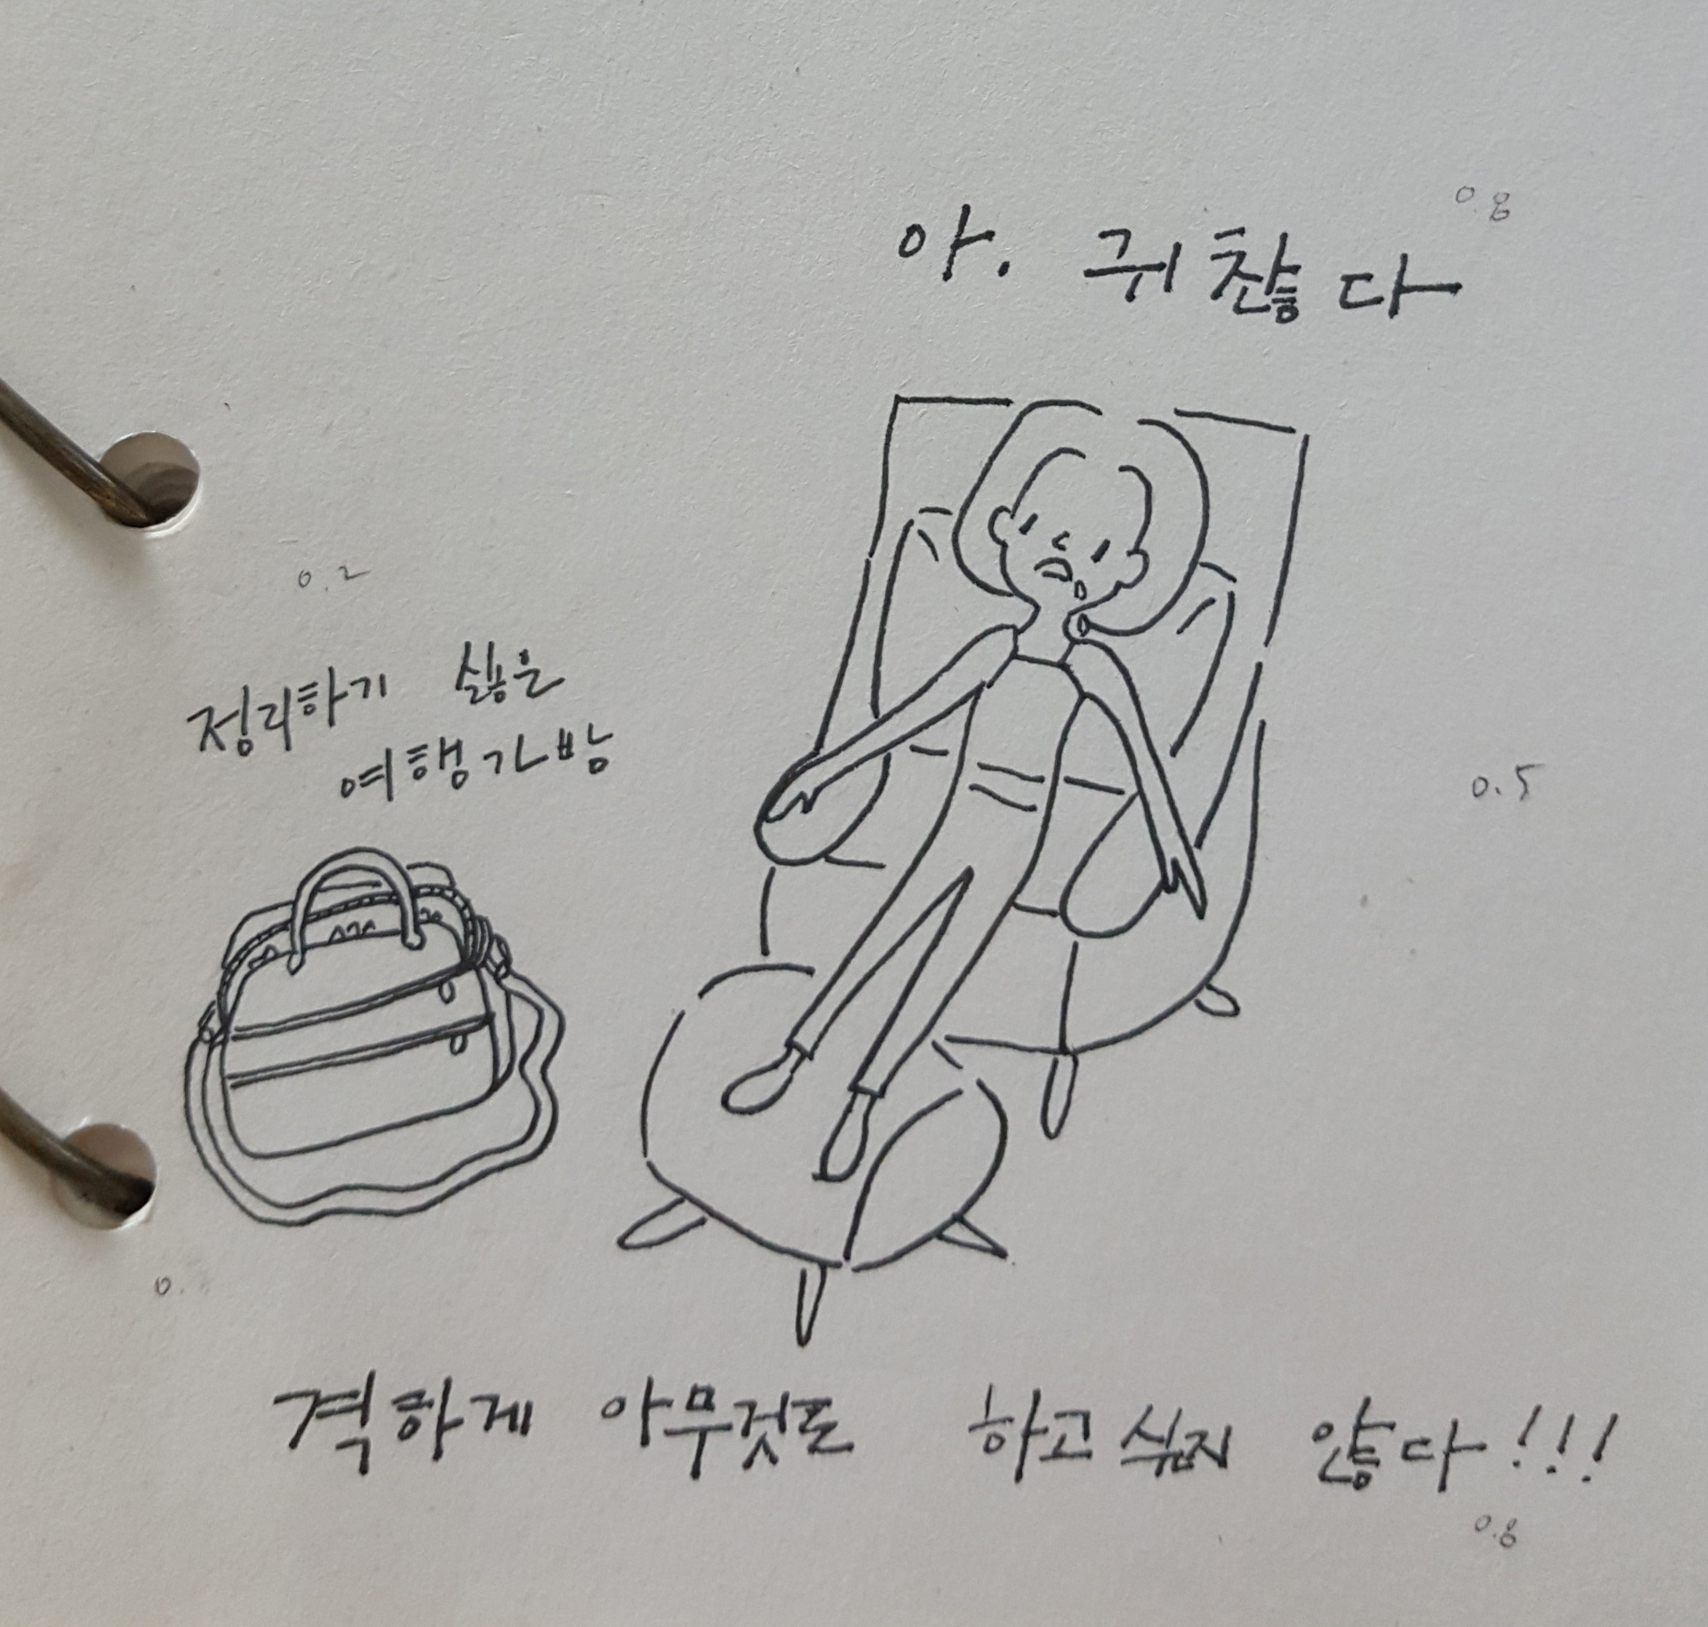 0.8
아. 귀찮다
0.2
정리하기 싫은
여행가방
0.5
0.
격하게 아무것도 하고싶지 않다!!!
0.8